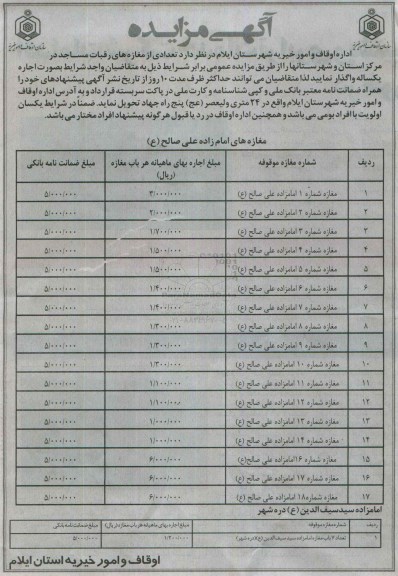 آگهی مزایده
اداره اوقاف و امور خیریه شهرستان ایلام در نظر دارد تعدادی از مغازه های رقبات مساجد در
مرکز استان و شهرستانها را از طریق مزایده عمومی برابر شرایط ذیل به متقاضیان واجد شرایط بصورت اجاره
یکساله واگذار نمایید لذا متقاضیان می توانند حداکثر ظرف مدت ۱۰ روز از تاریخ نشر آگهی پیشنهادهای خود را
همراه ضمانت نامه معتبر بانک ملی و کپی شناسنامه و کارت ملی در پاکت سربسته قرارداد و به آدرس اداره اوقاف
و امور خیریه شهرستان ایلام واقع در ۲۴ متری ولیعصر (عج) پنج راه جهاد تحویل نماید. ضمناً در شرایط یکسان
اولویت با افراد بومی می باشد و همچنین اداره اوقاف در رد یا قبول هر گونه پیشنهاد افراد مختار می باشد.
مغازه های امام زاده علی صالح (ع)
ردیف شماره مغازه موقوفه مبلغ اجاره بهای ماهیانه هر باب مغازه (ریال) مبلغ ضمانت نامه بانکی
۱ مغازه شماره ۱ امامزاده علی صالح (ع) ۳/۰۰۰/۰۰۰ ۵/۰۰۰/۰۰۰
۲ مغازه شماره ۲ امامزاده علی صالح (ع) ۲/۰۰۰/۰۰۰ ۵/۰۰۰/۰۰۰
۳ مغازه شماره ۳ امامزاده علی صالح (ع) ۱/۷۰۰/۰۰۰ ۵/۰۰۰/۰۰۰
۴ مغازه شماره ۴ امامزاده علی صالح (ع) ۱/۵۰۰/۰۰۰ ۵/۰۰۰/۰۰۰
۵ مغازه شماره ۵ امامزاده علی صالح (ع) ۱/۵۰۰/۰۰۰ ۵/۰۰۰/۰۰۰
۶ مغازه شماره ۶ امامزاده علی صالح (ع) ۱/۴۰۰/۰۰۰ ۵/۰۰۰/۰۰۰
۷ مغازه شماره ۷ امامزاده علی صالح (ع) ۱/۴۰۰/۰۰۰ ۵/۰۰۰/۰۰۰
۸ مغازه شماره ۸ امامزاده علی صالح (ع) ۱/۳۰۰/۰۰۰ ۵/۰۰۰/۰۰۰
۹ مغازه شماره ۹ امامزاده علی صالح (ع) ۱/۳۰۰/۰۰۰ ۵/۰۰۰/۰۰۰
۱۰ مغازه شماره ۱۰ امامزاده علی صالح (ع) ۱/۳۰۰/۰۰۰ ۵/۰۰۰/۰۰۰
۱۱ مغازه شماره ۱۱ امامزاده علی صالح (ع) ۱/۱۰۰/۰۰۰ ۵/۰۰۰/۰۰۰
۱۲ مغازه شماره ۱۲ امامزاده علی صالح (ع) ۱/۱۰۰/۰۰۰ ۵/۰۰۰/۰۰۰
۱۳ مغازه شماره ۱۳ امامزاده علی صالح (ع) ۱/۰۰۰/۰۰۰ ۵/۰۰۰/۰۰۰
۱۴ مغازه شماره ۱۴ امامزاده علی صالح (ع) ۱/۰۰۰/۰۰۰ ۵/۰۰۰/۰۰۰
۱۵ مغازه شماره ۱۶ امامزاده علی صالح (ع) ۶/۰۰۰/۰۰۰ ۵/۰۰۰/۰۰۰
۱۶ مغازه شماره ۱۷ امامزاده علی صالح (ع) ۶/۰۰۰/۰۰۰ ۵/۰۰۰/۰۰۰
۱۷ مغازه شماره ۱۸ امامزاده علی صالح (ع) ۶/۰۰۰/۰۰۰ ۵/۰۰۰/۰۰۰
امامزاده سید سیف الدین (ع) دره شهر
ردیف شماره مغازه موقوفه مبلغ اجاره بهای ماهیانه هر باب مغازه (ریال) مبلغ ضمانت نامه بانکی
۱ باب مغازه امامزاده سید سیف الدین (ع) دره شهر ۱/۲۰۰/۰۰۰ ۵/۰۰۰/۰۰۰
اوقاف و امور خیریه استان ایلام